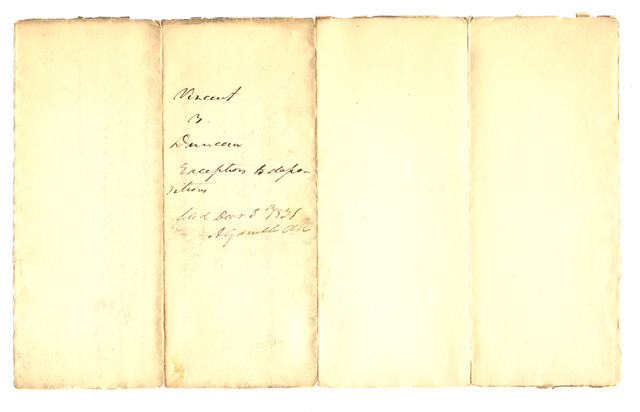 Vincent
v.
Duncan
Exceptions to depo-
sitions
Filed Decr 3d 1831
A Gamble Clk